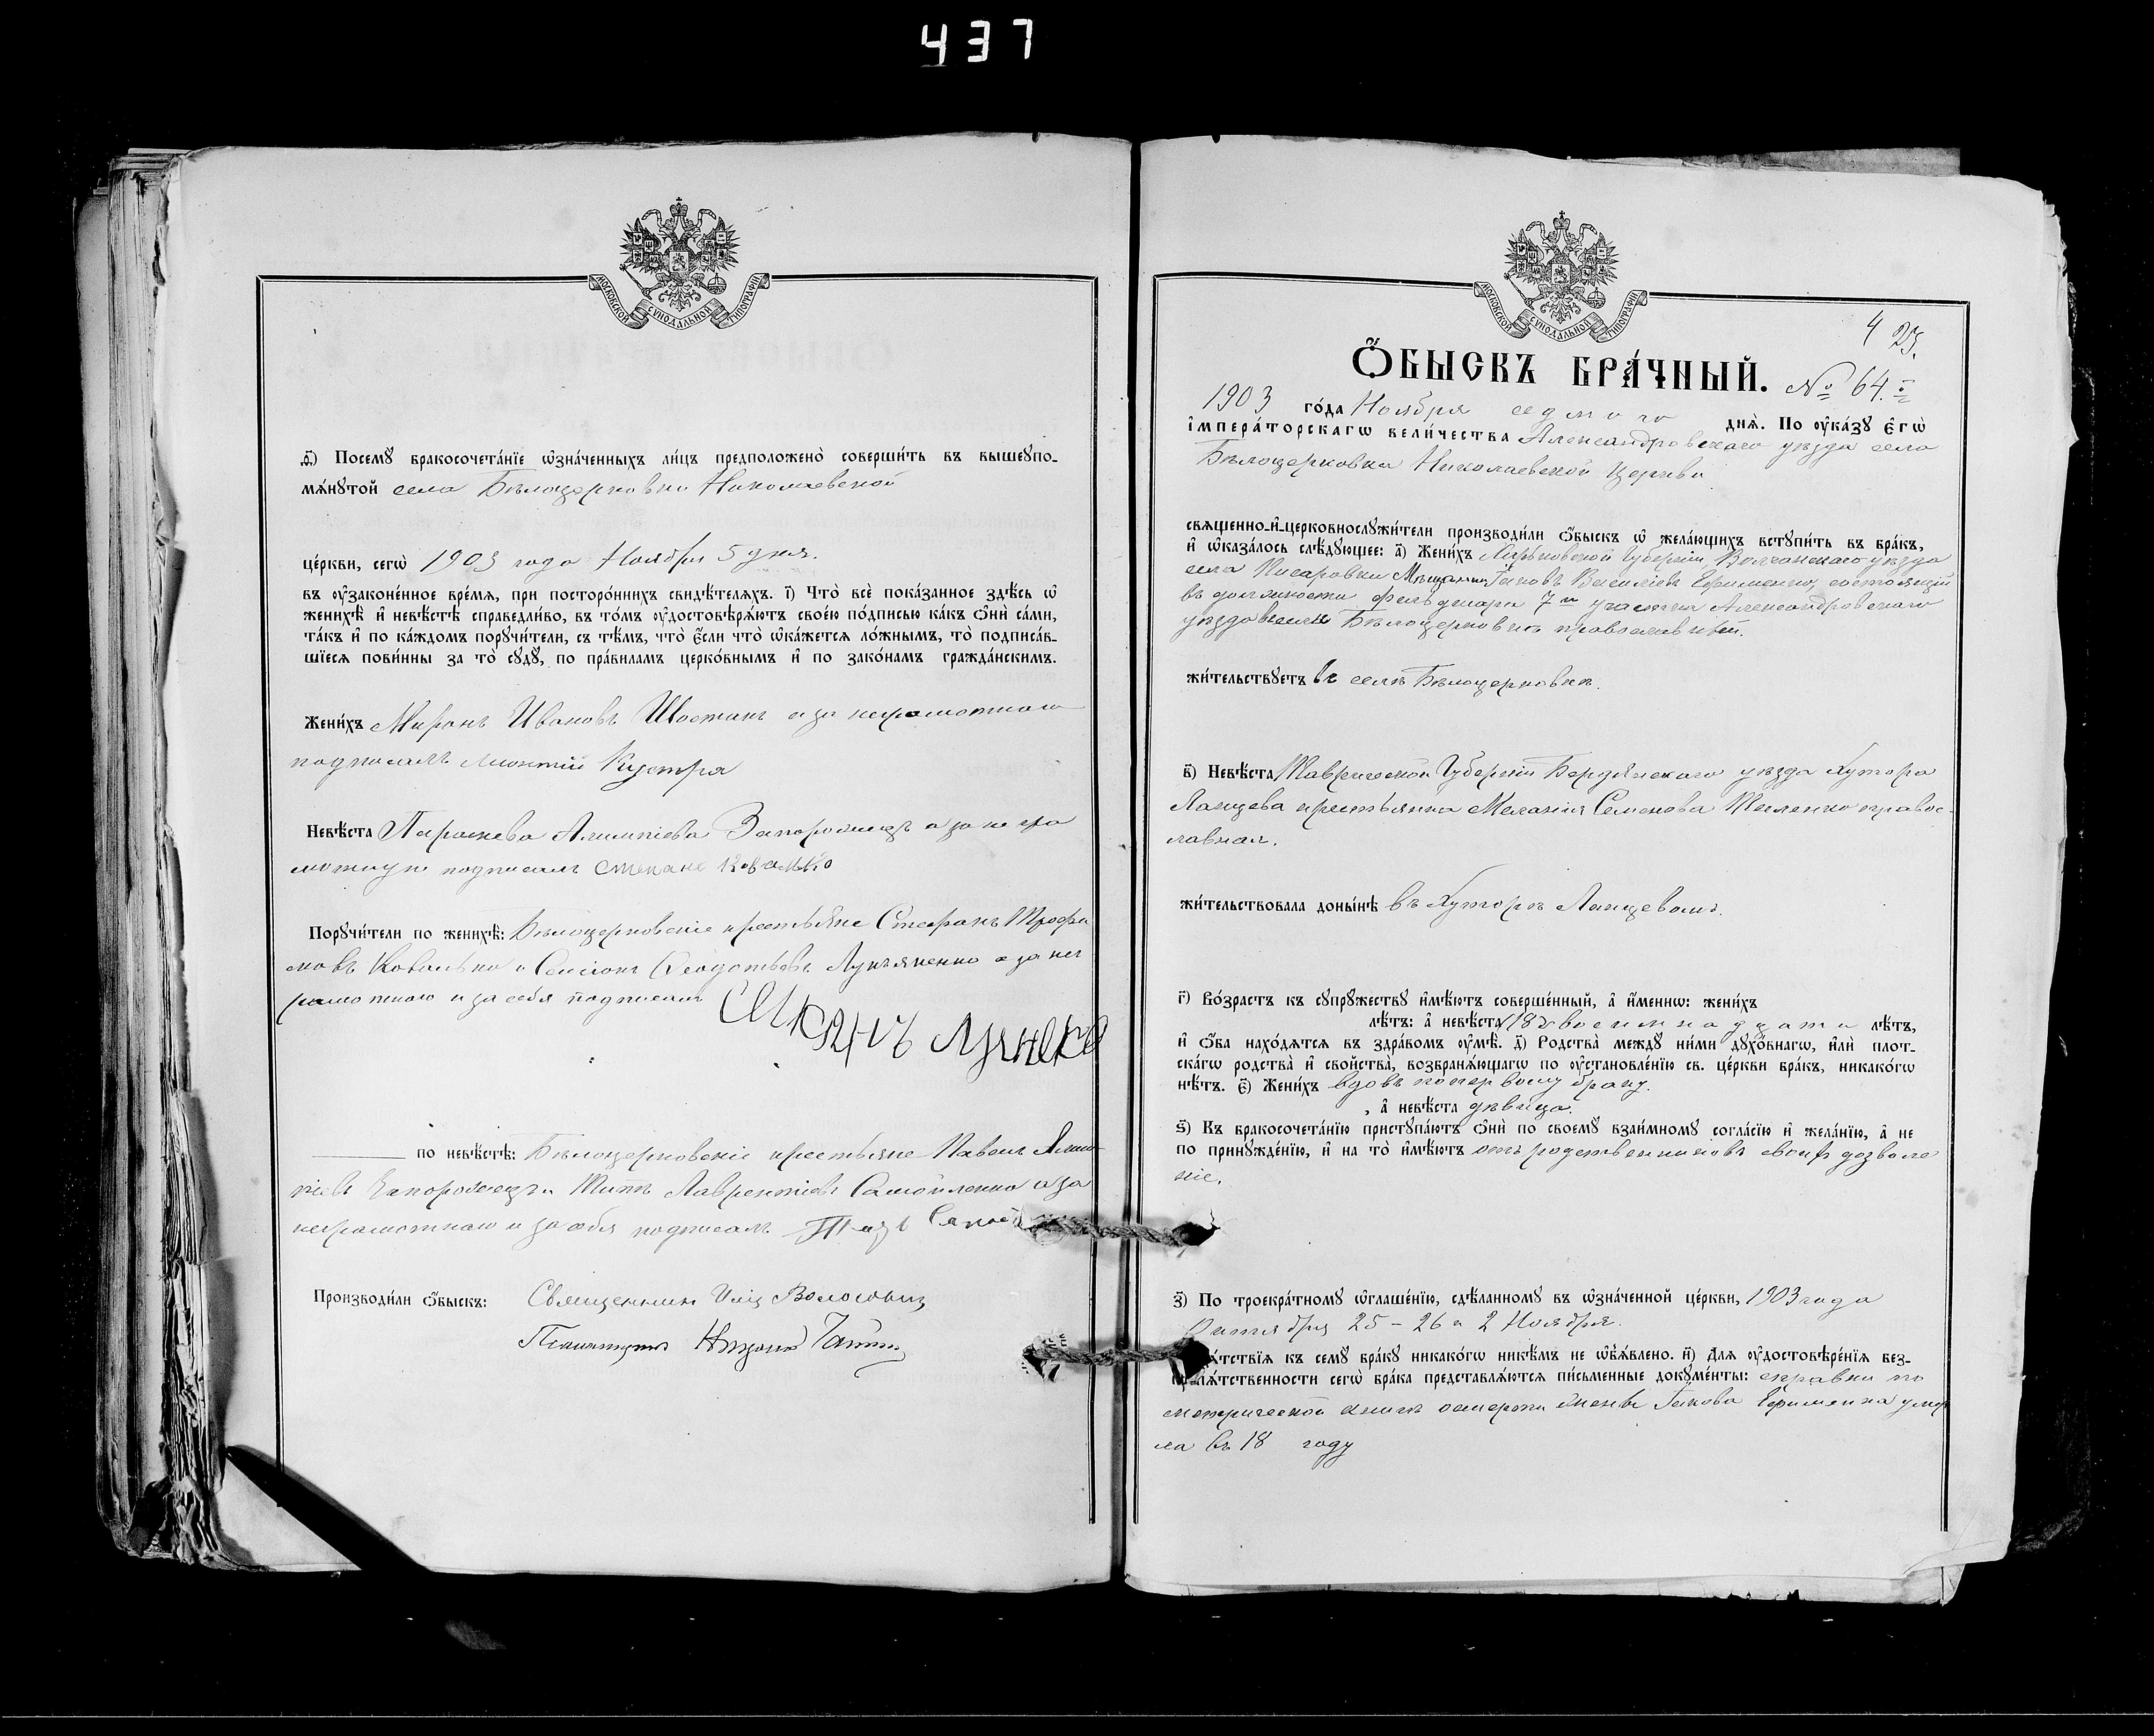 437
МОСКОВСКОЙ СѴНОДАЛЬНОЙ ТИПОГРАФІИ
Посемꙋ̀ бракосочета́нїе ѡ҆зна́ченныхъ ли́цъ предположено̀ соверши́ть въ вышеупо-
мѧ́нꙋтой села Бѣлоцерковки Николаевской
це́ркви, сегѡ̀ 1903 года Ноября 5 дня.
въ оу҆зако́ненное вре́мѧ, при посторо́ннихъ свидѣ́телѧхъ. і҃) Что̀ всѐ пока́занное здѣ́сь ѡ҆
женихѣ̀ и҆ невѣ́стѣ справедли́во, въ то́мъ оу҆достовѣрѧ́ютъ свое́ю по́дписью ка́къ ѻ҆нѝ са́ми,
та́къ и҆ по ка́ждомъ порꙋчи́тели, съ тѣ́мъ, что̀ є҆́сли что̀ ѡ҆ка́жетсѧ ло́жнымъ, то̀ подписа́в-
шїесѧ пови́нны за то̀ сꙋдꙋ̀, по пра́виламъ церко́внымъ и҆ по зако́намъ гражда́нскимъ.
Жени́хъ Миронъ Ивановъ Шостакъ а за неграмотнаго
подписалъ Кустря
Невѣ́ста Параскева Алимпіева Запорожецъ а за негра
мотную подписалъ Степанъ Ковалько
Порꙋчи́тели по женихѣ̀: Бѣлоцерковскіе крестьяне Стефанъ Трофи
мовъ Ковалько и Симеонъ Ѳеодотьевъ Лукьяненко а за не
грамотного и за себя подписалъ
по невѣ́стѣ: Бѣлоцерковскіе крестьяне Павелъ Алим
піевъ Запорожецъ и Титъ Лаврентіевъ Самойленко а за
неграмотного и за себя подписалъ
Производи́ли ѻ҆́быскъ: Священникъ
Псаломщикъ
МОСКОВСКОЙ СѴНОДАЛЬНОЙ ТИПОГРАФІИ
4
Ѻ҆́БЫСКЪ БРА́ЧНЫЙ. № 64.
1903 го́да Ноября седмого днѧ̀. По оу҆ка́зꙋ є҆гѡ̀
і҆мпера́торскагѡ вели́чества Александровскаго уѣзда села
Бѣлоцерковки Николаевской Церкви
свѧще́нно-и҆-церковнослꙋжи́тели производи́ли ѻ҆́быскъ ѡ҆ жела́ющихъ встꙋпи́ть въ бра́къ,
и҆ ѡ҆каза́лось слѣ́дꙋющее: а҃) Жени́хъ Харьковской Губерніи, Волчанскаго уѣзда
села Писаровки Мѣщанинъ Іаковъ Васильевъ Ефименко, состоящій
въ должности фельдшара 7го участка Александровского
уѣзда Бѣлоцерковкѣ православный.
жи́тельствꙋетъ въ селѣ Бѣлоцерковкѣ.
в҃) Невѣ́ста Таврической Губерніи Бердянскаго уѣзда Хутора
Ланцева крестьянка Меланія Семенова православ-
лавная.
жи́тельствовала доны́нѣ въ Хуторѣ Ланцевомъ.
г҃) Во́зрастъ къ сꙋпрꙋ́жествꙋ и҆мѣ́ютъ соверше́нный, а҆ и҆́меннѡ: жени́хъ
лѣ́тъ: а҆ невѣ́ста 18 восемнадцати лѣ́тъ,
и҆ ѻ҆́ба нахо́дѧтсѧ въ здра́вомъ оу҆мѣ̀. д҃) Родства̀ междꙋ̀ ни́ми дꙋхо́внагѡ, и҆лѝ плот-
ска́гѡ родства̀ и҆ сво́йства, возбранѧ́ющагѡ по оу҆становле́нїю св. це́ркви бра́къ, никако́гѡ
нѣ́тъ. є҃) Жени́хъ вдовъ по первому браку.
, а҆ невѣ́ста дѣвица.
ѕ҃) Къ бракосочета́нїю пристꙋпа́ютъ ѻ҆нѝ по своемꙋ̀ взаи́мномꙋ согла́сїю и҆ жела́нїю, а҆ не
по принꙋжде́нїю, и҆ на то̀ и҆мѣ́ютъ отъ родственниковъ своихъ дозволе
ніе.
з҃) По троекра́тномꙋ ѡ҆глаше́нїю, сдѣ́ланномꙋ въ ѡ҆зна́ченной це́ркви, 1903 года
Октября 25 - 26 и 2 Ноября.
ѧ́тствїѧ къ семꙋ̀ бра́кꙋ никако́гѡ никѣ́мъ не ѡ҆б̾ѧ́влено. и҃) Для оу҆достовѣре́нїѧ без-
препѧ́тственности сегѡ̀ бра́ка представлѧ́ютсѧ пи́сьменные докꙋме́нты: справка по
метрической книгѣ о смерти жены Іакова Ефименка умер
ла въ 18 году